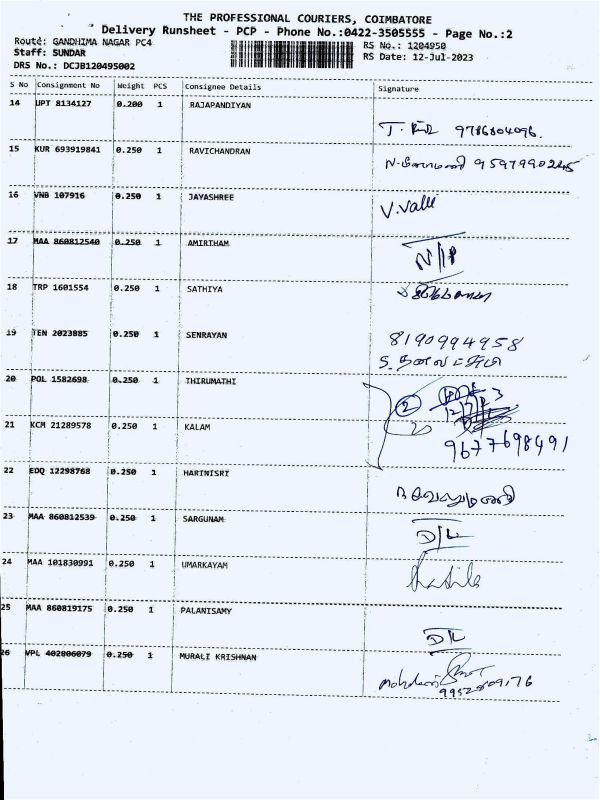 THE PROFESSIONAL COURIERS, COIMBATORE
Delivery Runsheet - PCP - Phone No.:0422-3505555 - Page No.:2
Route: GANDHIMA NAGAR PC4
RS No.: 1204950
Staff: SUNDAR
RS Date: 12-Jul-2023
DRS No.: DCJB120495002
S No Consignment No Weight PCS Consignee Details Signature
14 UPT 8134127 0.200 1 RAJAPANDIYAN
9786804096.
15 KUR 693919841 0.250 1 RAVICHANDRAN
9597990245
16 VNB 107916 0.250 1 JAYASHREE
V.Valli
17 MAA 860812540 0.250 1 AMIRTHAM
N/P
18 TRP 1601554 0.250 1 SATHIYA
19 TEN 2023885 0.250 1 SENRAYAN
8190994958
20 POL 1582698 0.250 1 THIRUMATHI
2
21 KCM 21289578 0.250 1 KALAM
9677698491
22 EDQ 12298768 0.250 1 HARINISRI
23 MAA 860812539 0.250 1 SARGUNAM
D/L
24 MAA 101830991 0.250 1 UMARKAYAM
25 MAA 860819175 0.250 1 PALANISAMY
D/L
26 VPL 402806079 0.250 1 MURALI KRISHNAN
9952809176